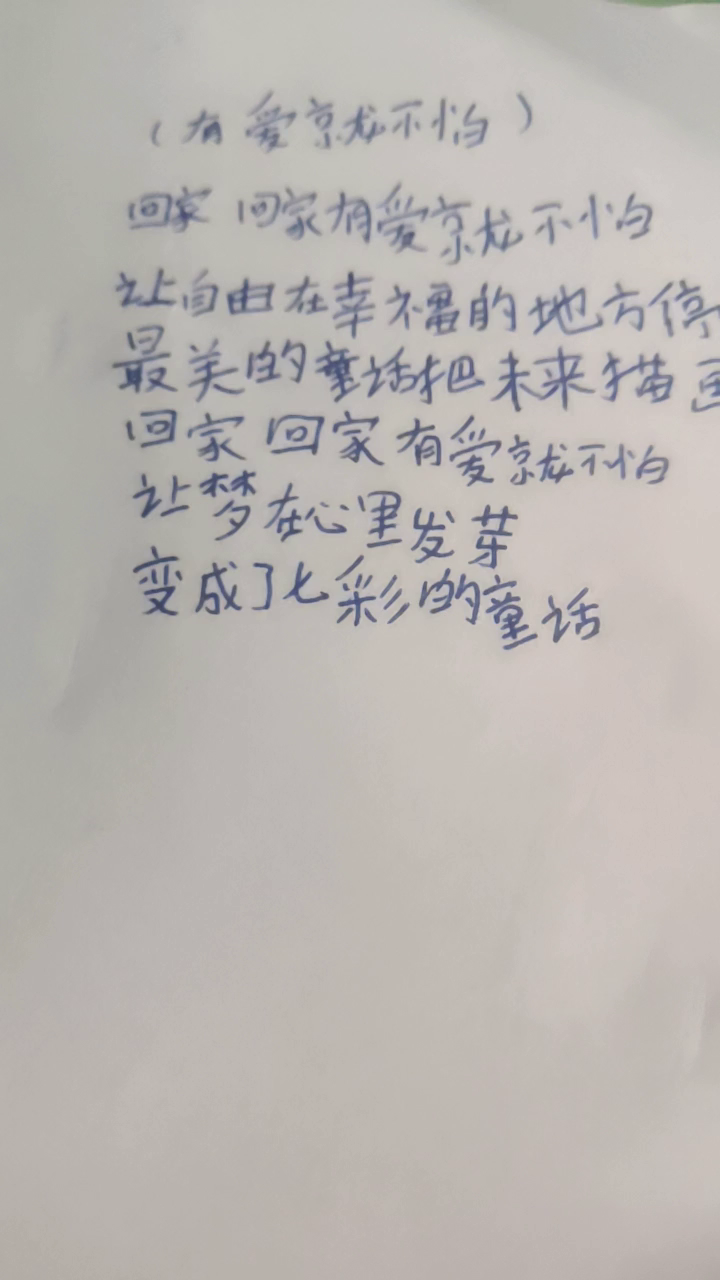 （有爱就不怕）
回家 回家有爱就不怕
让自由在幸福的地方停
最美的童话把未来描画
回家 回家有爱就不怕
让梦在心里发芽
变成了七彩的童话